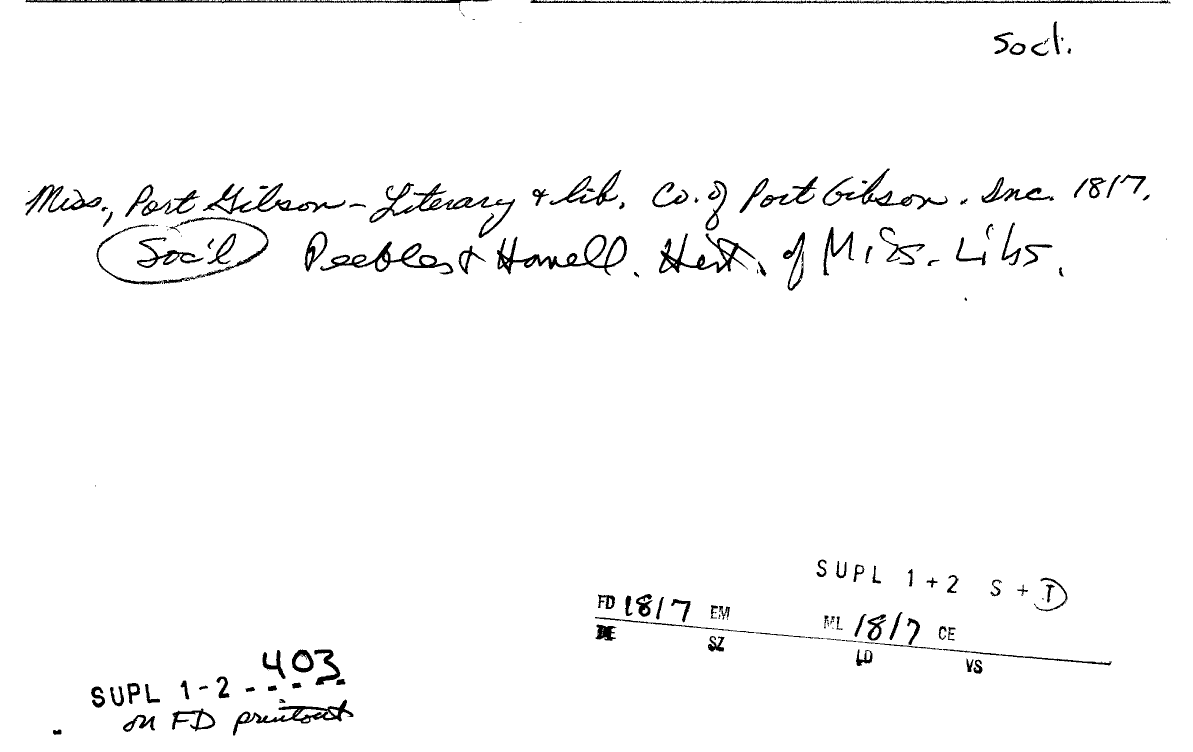 Soc'l.
Miss., Port Gibson - Literary & lib. Co. of Port Gibson. Inc. 1817.
Soc'l Peebles & Howell. Hist. of Miss. Libs.
SUPL 1+2 S + T
FD 1817 EM ML 1817 CE
SZ LD VS
403
SUPL 1-2 - - - - -
on FD printout